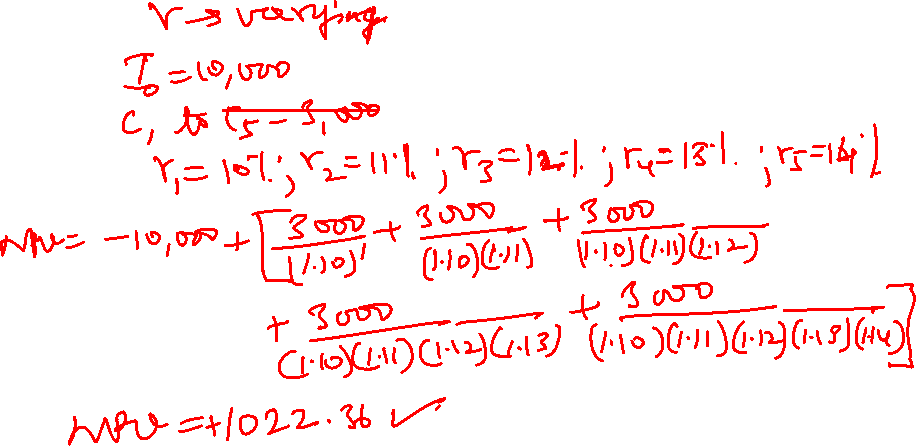 r → varying
I₀ = 10,000
C₁ to C₅ - 3,000
r₁ = 10%; r₂ = 11%; r₃ = 12%; r₄ = 13%; r₅ = 14%
NPV = -10,000 + [3000/(1.10)¹ + 3000/(1.10)(1.11) + 3000/(1.10)(1.11)(1.12)
+ 3000/(1.10)(1.11)(1.12)(1.13) + 3000/(1.10)(1.11)(1.12)(1.13)(1.14)]
NPV = +1022.36 ✓